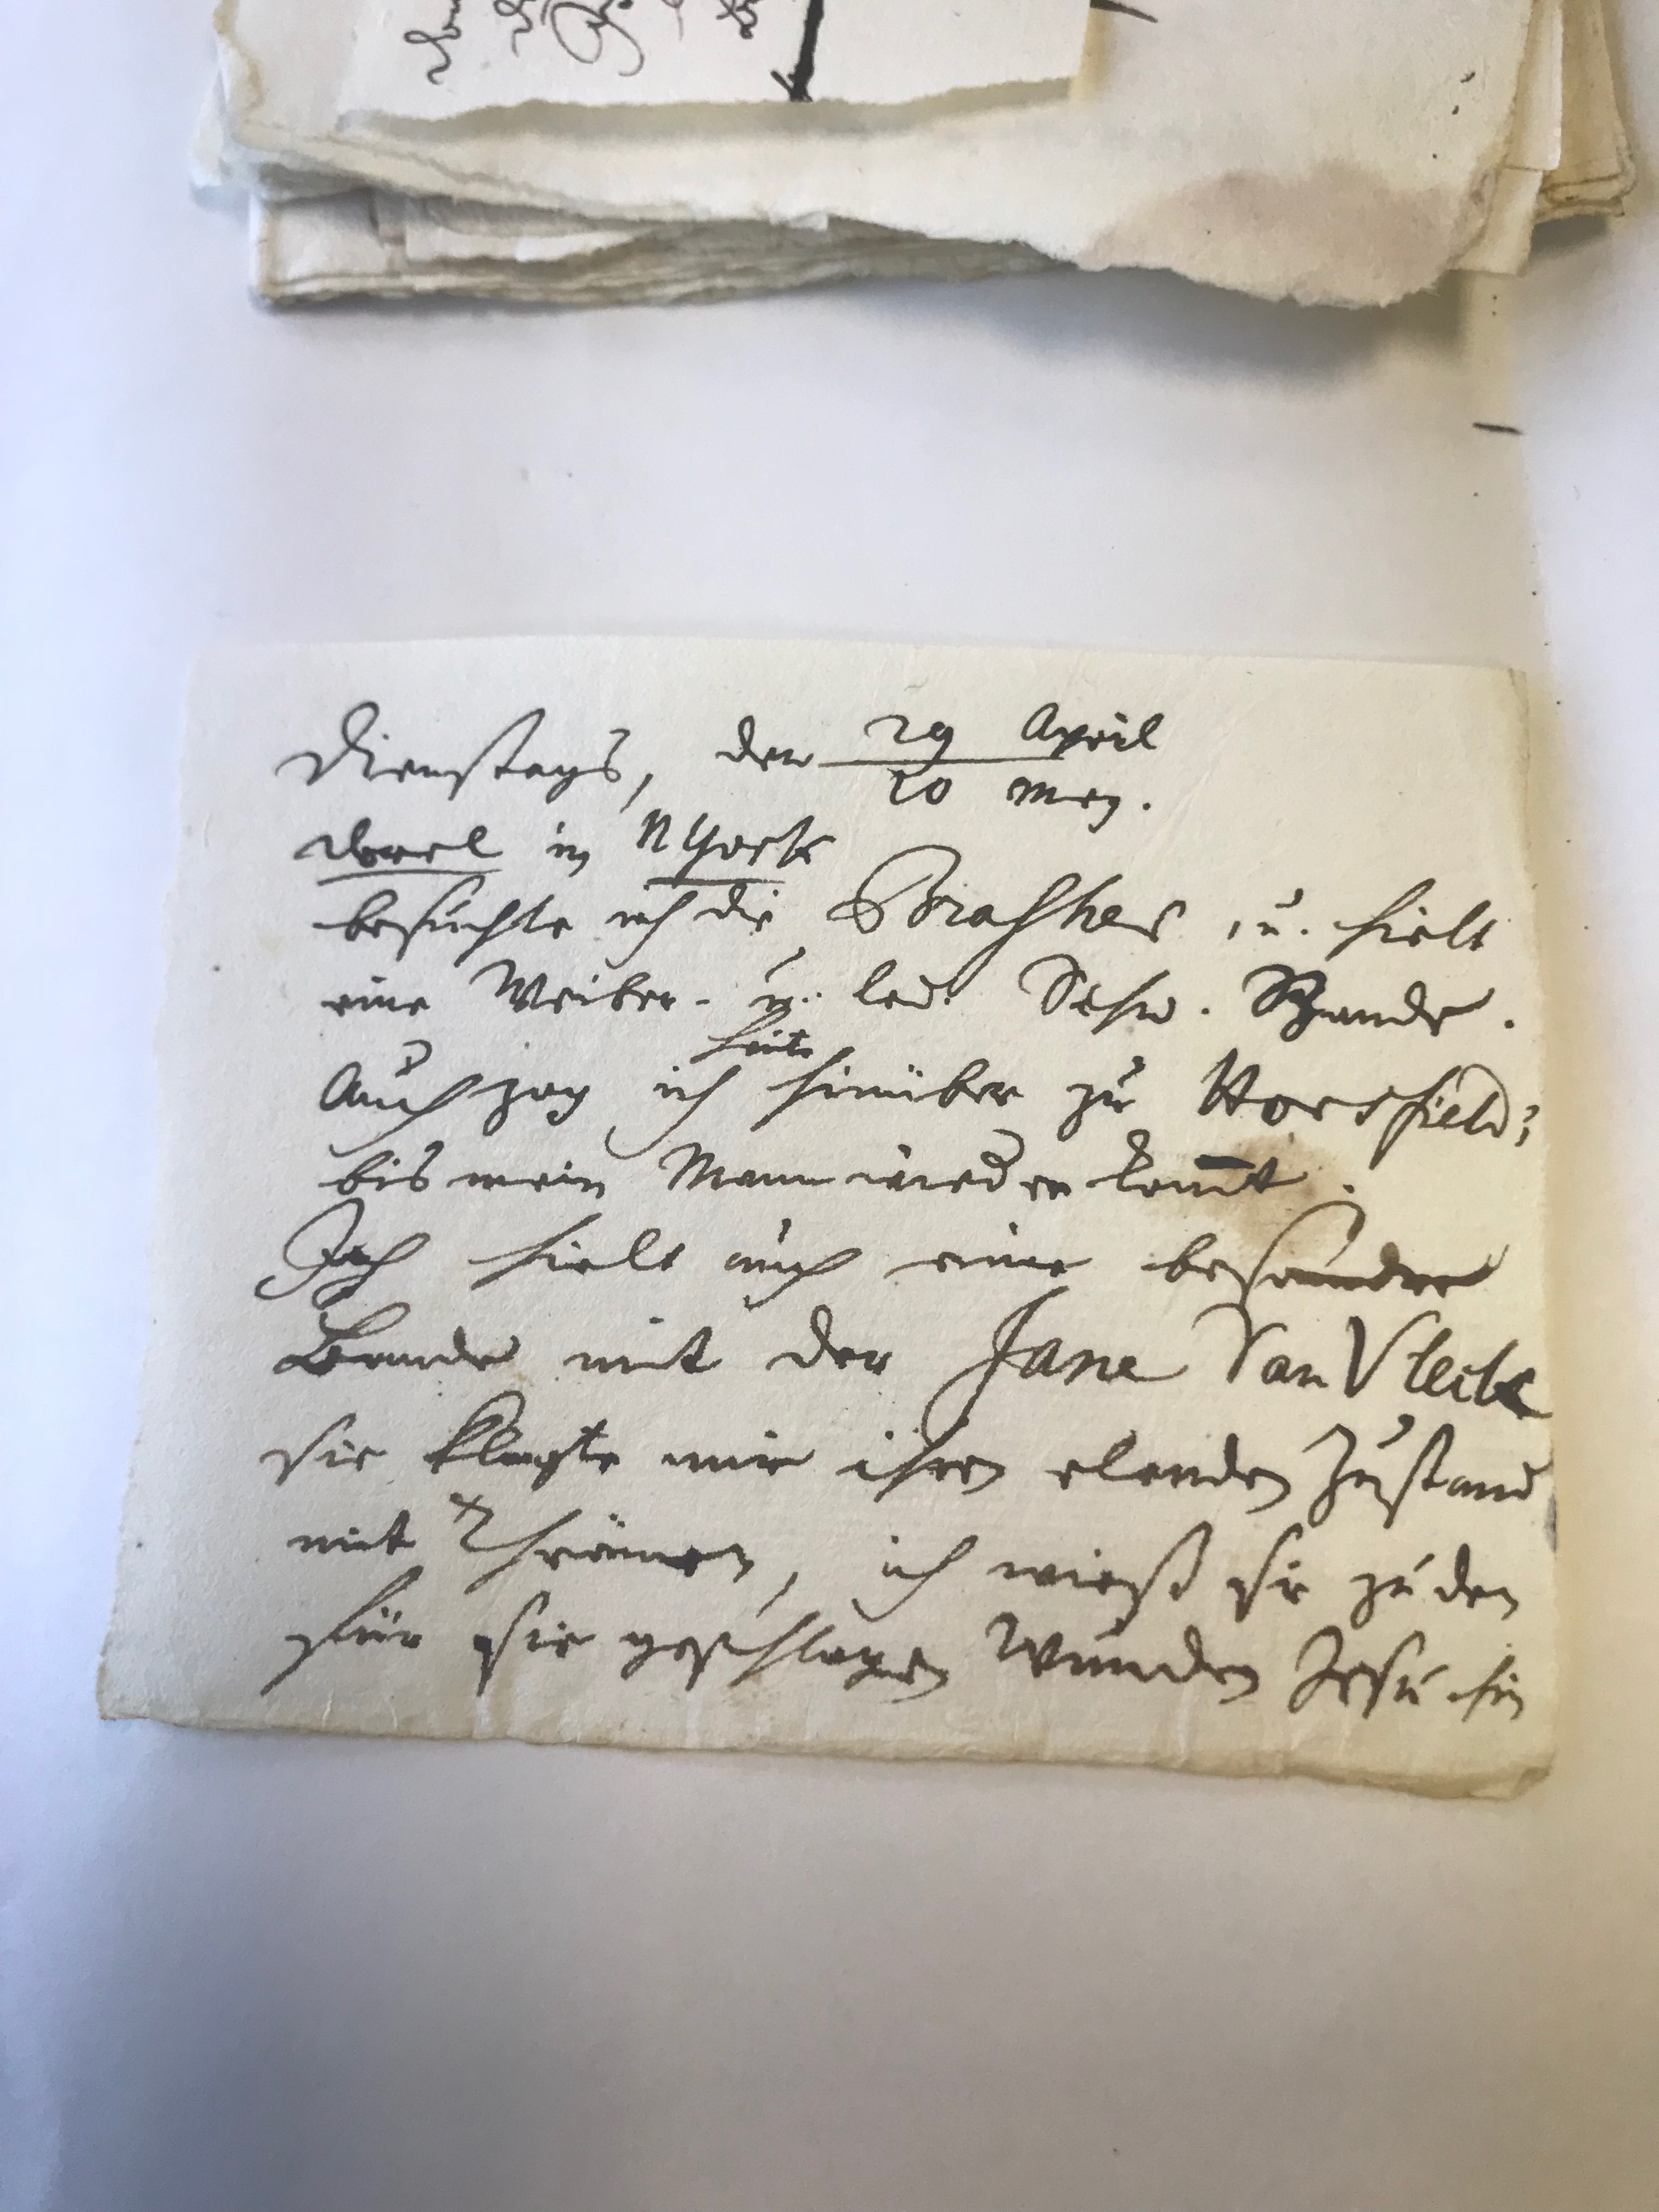 Dienstags, den 29 April
10 May.
in NYork
besuchte ich die Brashers, u. hielt
eine Weiber- u. led. Schw. Bande.
Auch zog ich heute hinüber zu Horsfields
bis mein Mann wieder kom̄t.
Ich hielt auch eine besondre
Bande mit der Jane Van Vleck
sie klagte mir ihren elenden Zustand
mit Thränen, ich wieß sie zu den
für sie geschlagen Wunden Jesu hin